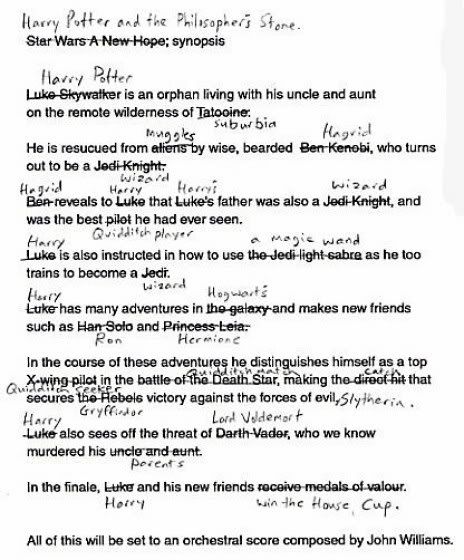 Harry Potter and the Philosopher's Stone.
Star Wars A New Hope: synopsis
Harry Potter
Luke Skywalker is an orphan living with his uncle and aunt
on the remote wilderness of Tatooine.
suburbia
muggles Hagrid
He is resucued from aliens by wise, bearded Ben Kenobi, who turns
out to be a Jedi Knight.
wizard
Hagrid Harry Harry's wizard
Ben reveals to Luke that Luke's father was also a Jedi Knight, and
was the best pilot he had ever seen.
Quidditch player
Harry a magic wand
Luke is also instructed in how to use the Jedi light sabre as he too
trains to become a Jedi.
wizard
Harry Hogwarts
Luke has many adventures in the galaxy and makes new friends
such as Han Solo and Princess Leia.
Ron Hermione
In the course of these adventures he distinguishes himself as a top
Quidditch match catch
X-wing pilot in the battle of the Death Star, making the direct hit that
Quidditch seeker
secures the Rebels victory against the forces of evil, Slytherin.
Gryffindor
Harry Lord Voldemort
Luke also sees off the threat of Darth Vader, who we know
murdered his uncle and aunt.
parents
In the finale, Luke and his new friends receive medals of valour.
Harry win the House Cup.
All of this will be set to an orchestral score composed by John Williams.